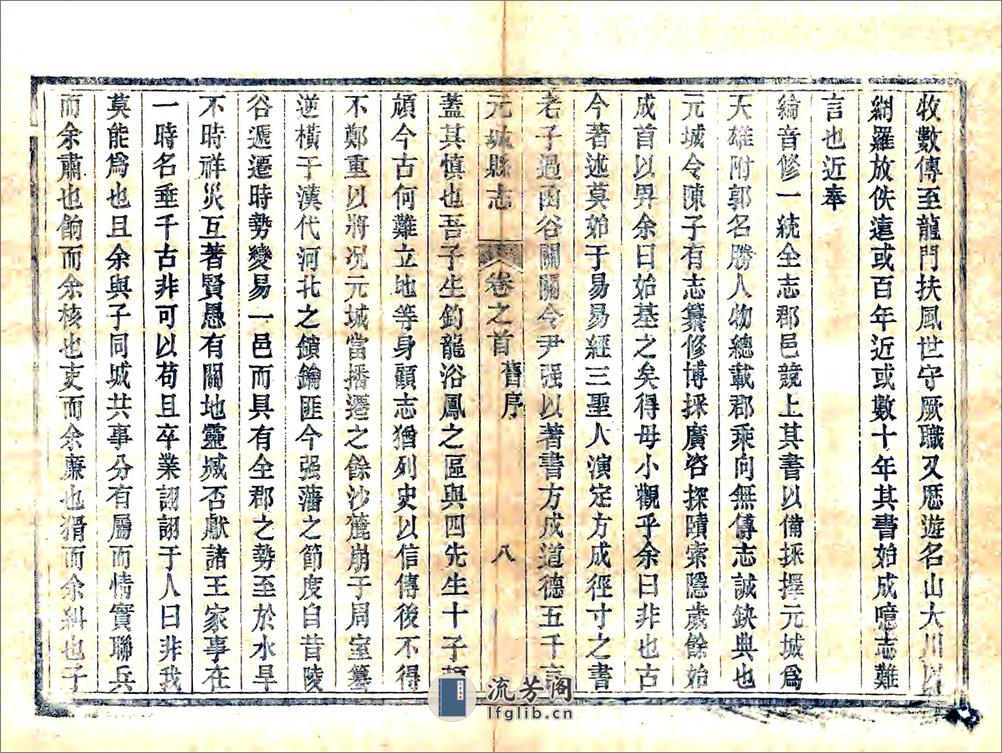 牧數傳至龍門扶風世守厥職又歷遊名山大川以
網羅放佚遠或百年近或數十年其書始成噫志難
言也近奉
綸音修一統全志郡邑競上其書以備採擇元城爲
天雄附郭名勝人物總載郡乘向無傳志誠缺典也
元城令陳子有志纂修博採廣咨探賾索隱歲餘始
成首以畀余曰始基之矣得毋小觀乎余曰非也古
今著述莫如于易易經三聖人演定方成徑寸之書
老子過函谷關關令尹强以著書方成道德五千言
元城縣志 卷之首 舊序 八
蓋其慎也吾子生釣龍浴鳳之區與四先生十子頡
頏今古何難立地等身顧志猶列史以信傳後不得
不鄭重以將況元城當播遷之餘沙麓崩于周室纂
逆橫于漢代河北之鎖鑰匪今强藩之節度自昔陵
谷遞遷時勢變易一邑而具有全郡之勢至於水旱
不時祥災互著賢愚有關地靈城否獻諸王家事在
一時名垂千古非可以苟且卒業詡詡于人曰非我
莫能爲也且余與子同城共事分有屬而情實聯兵
而余肅也餉而余核也吏而余廉也猾而余糾也子
流芳阁
lfglib.cn